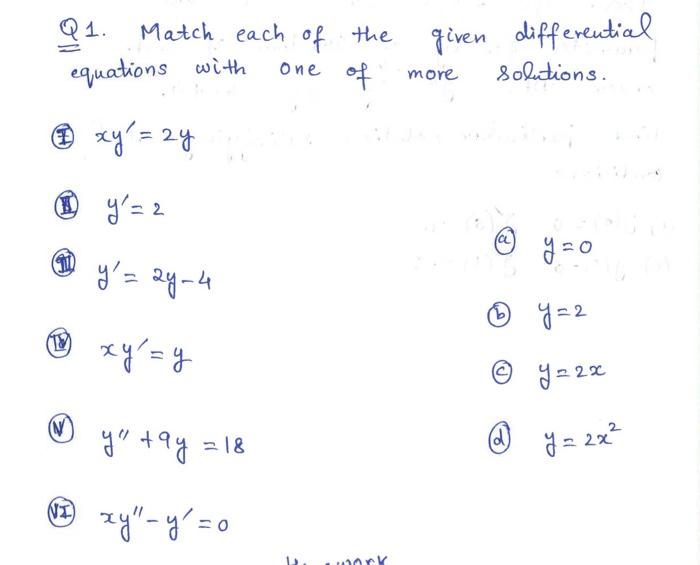 Q1. Match each of the given differential
equations with one of more solutions.
I xy′ = 2y
II y′ = 2
III y′ = 2y - 4
a y = 0
b y = 2
IV xy′ = y
c y = 2x
V y″ + 9y = 18
d y = 2x²
VI xy″ - y′ = 0